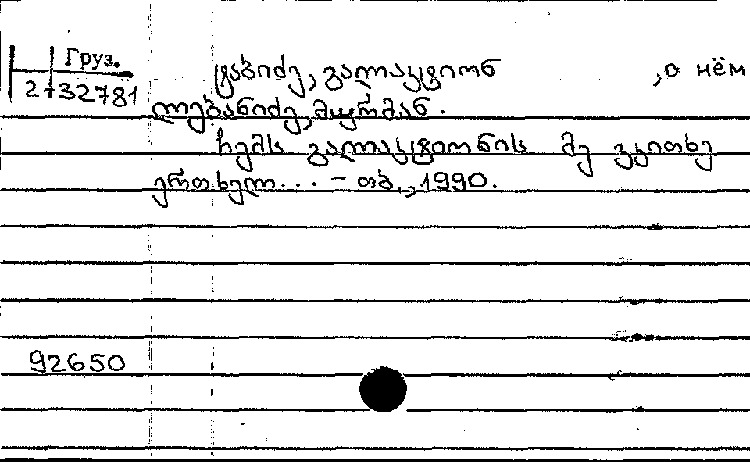 Груз.
2-732781
ტაბიძე, გალაკტიონ , о нём
ლებანიძე, მურმან.
ჩემს გალაკტიონის მე ვკითხე
ერთხელ... – თბ., 1990.
92650